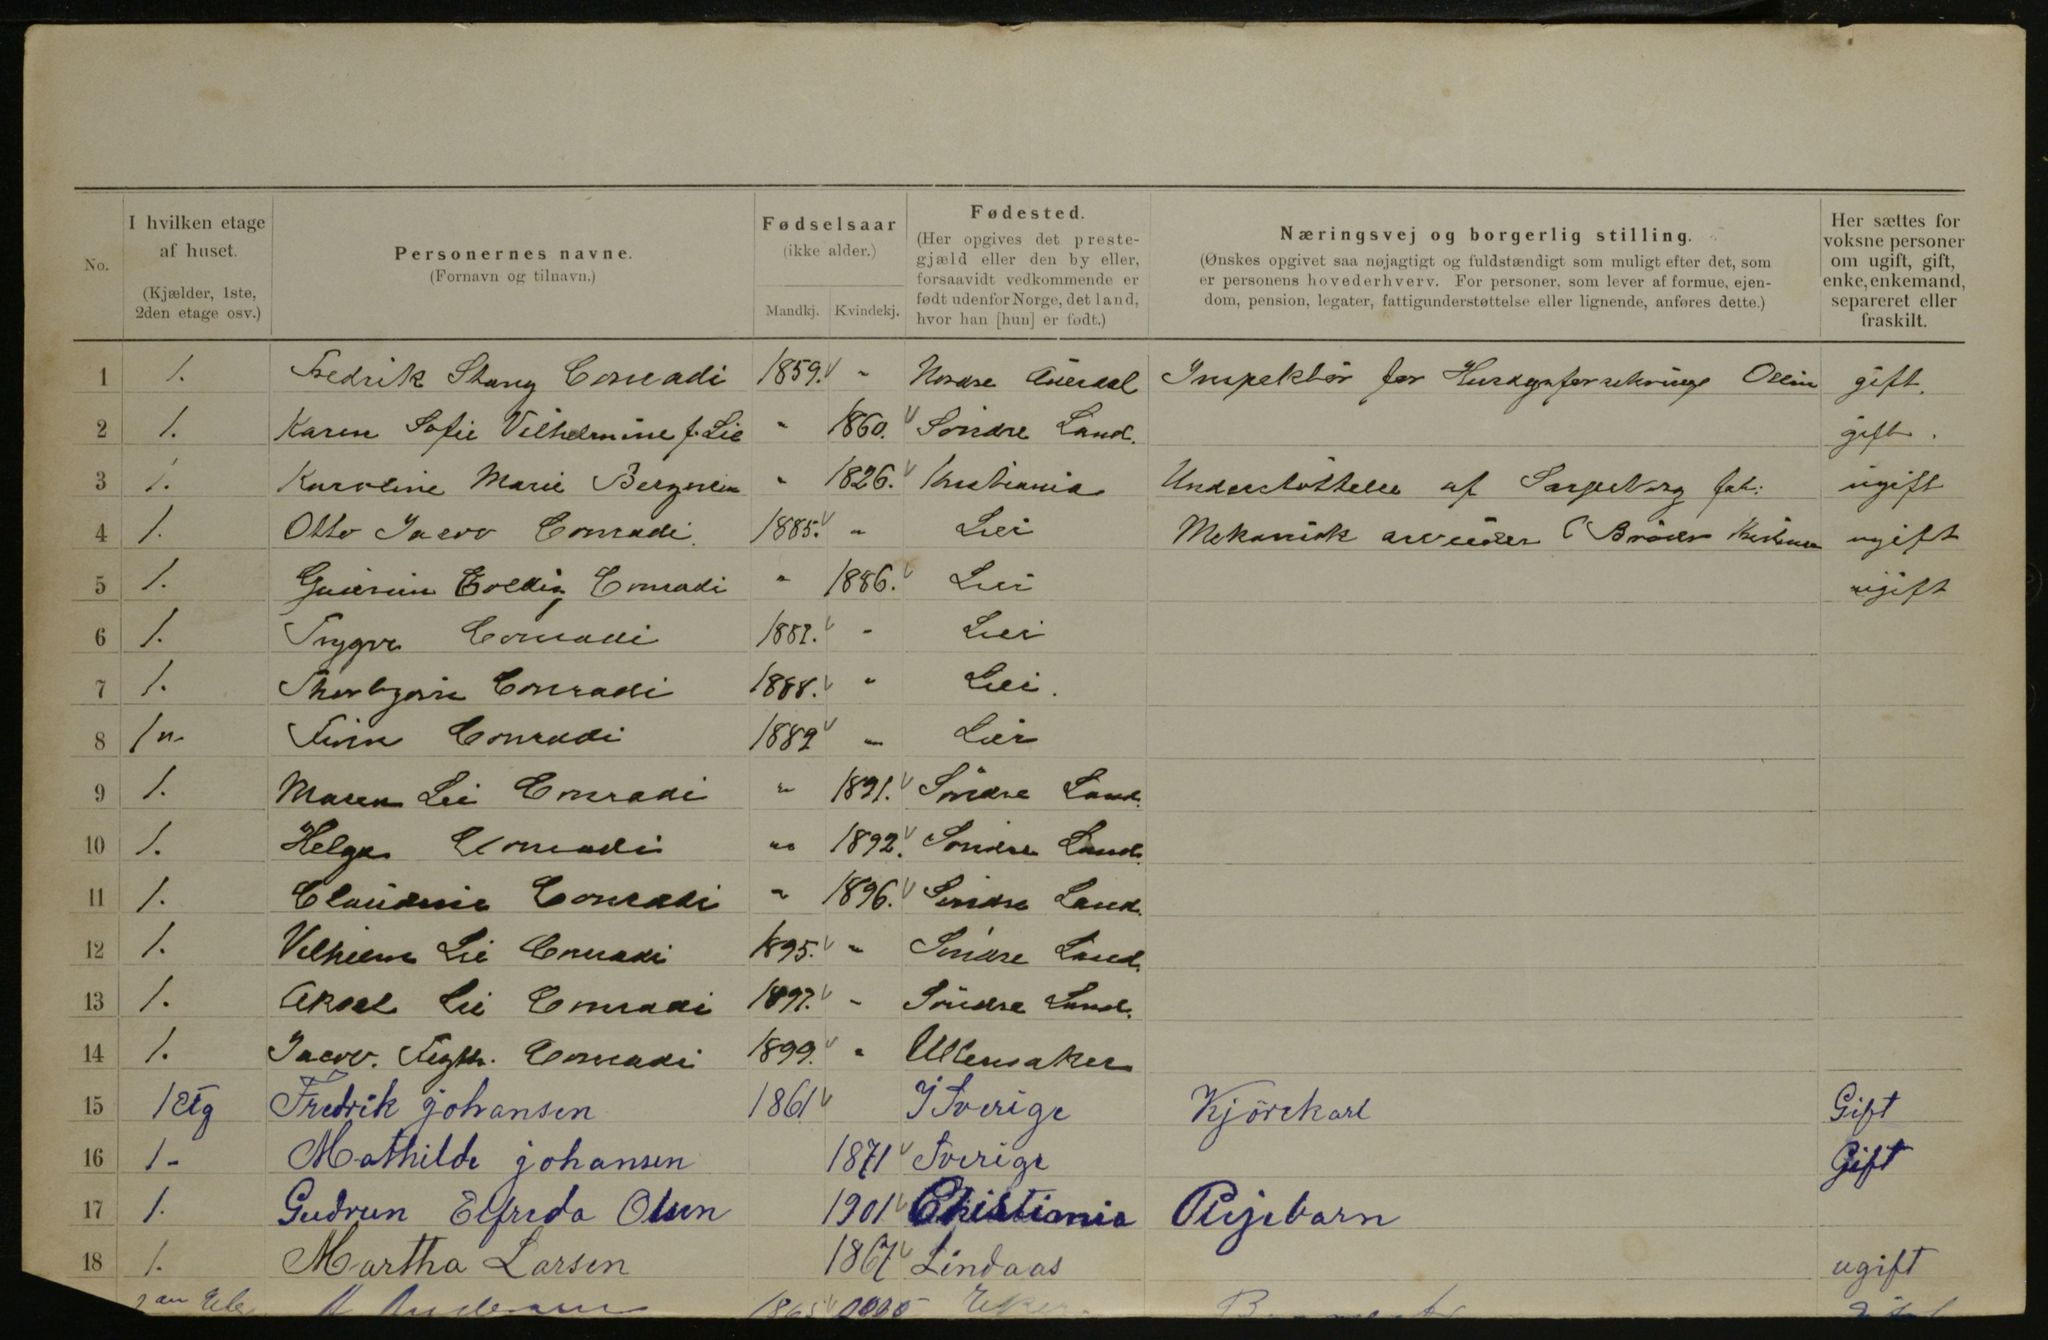 No.
I hvilken etage
af huset.
(Kjælder, 1ste,
2den etage osv.)
Personernes navne.
(Fornavn og tilnavn.)
Fødselsaar
(ikke alder.)
Mandkj. Kvindekj.
Fødested.
(Her opgives det preste-
gjæld eller den by eller,
forsaavidt vedkommende er
født udenfor Norge, det land,
hvor han [hun] er født.)
Næringsvej og borgerlig stilling.
(Ønskes opgivet saa nøjagtigt og fuldstændigt som muligt efter det, som
er personens hovederhverv. For personer, som lever af formue, ejen-
dom, pension, legater, fattigunderstøttelse eller lignende, anføres dette.)
Her sættes for
voksne personer
om ugift, gift,
enke, enkemand,
separeret eller
fraskilt.
1 1. Fredrik Stang Conradi 1859. " Nordre Aurdal Inspektör for gift.
2 1. Karen Sofie Vilhelmine f. Lie " 1860. Söndre Land. gift.
3 1. Karoline Marie " 1826. Kristiania Understöttelse af Sarpsborg fat: ugift
4 1. Otto Jacob Conradi. 1885. " Lier Mekanisk arbeider ugift
5 1. Gudrun Conradi " 1886. Lier ugift
6 1. Trygve Conradi 1887. " Lier
7 1. Thorbjørn Conradi 1888. " Lier.
8 1 " Finn Conradi 1889 " Lier
9 1. Maren Lie Conradi " 1891. Söndre Land.
10 1. Helga Conradi " 1892. Söndre Land.
11 1. Claudine Conradi " 1896. Söndre Land.
12 1. Vilhelm Lie Conradi 1895. " Söndre Land.
13 1. Aksel Lie Conradi 1897. " Söndre Land.
14 1. Jacob. Conradi 1899. " Ullensaker
15 1 Etg Fredrik Johansen 1861 I Sverige Kjörekarl Gift
16 1 - Mathilde Johansen 1871 Sverige Gift
17 1. Gudrun Elfrida Olsen 1901 Christiania Plejebarn
18 1. Martha Larsen 1867 Lindaas ugift
1865